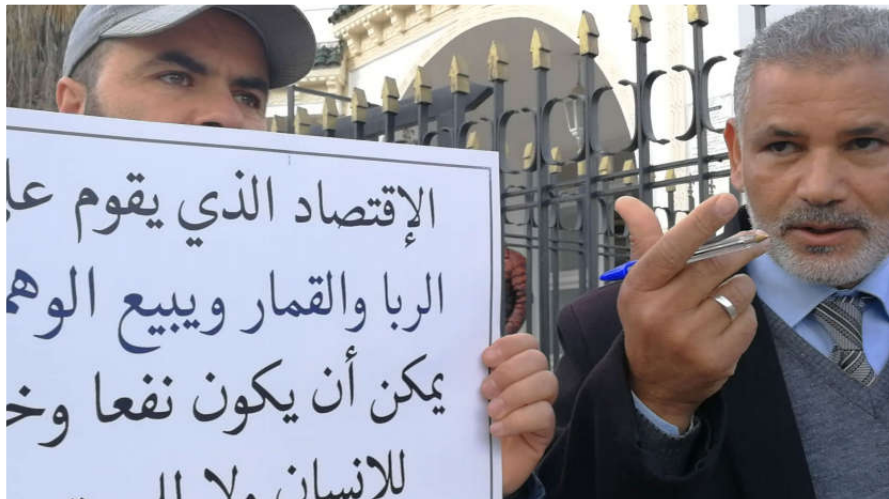 الإقتصاد الذي يقوم
الربا والقمار ويبيع
يمكن أن يكون نفعا
للإنسان ولا